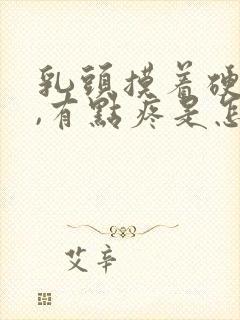 乳頭摸着硬
,有點疼是怎
艾辛